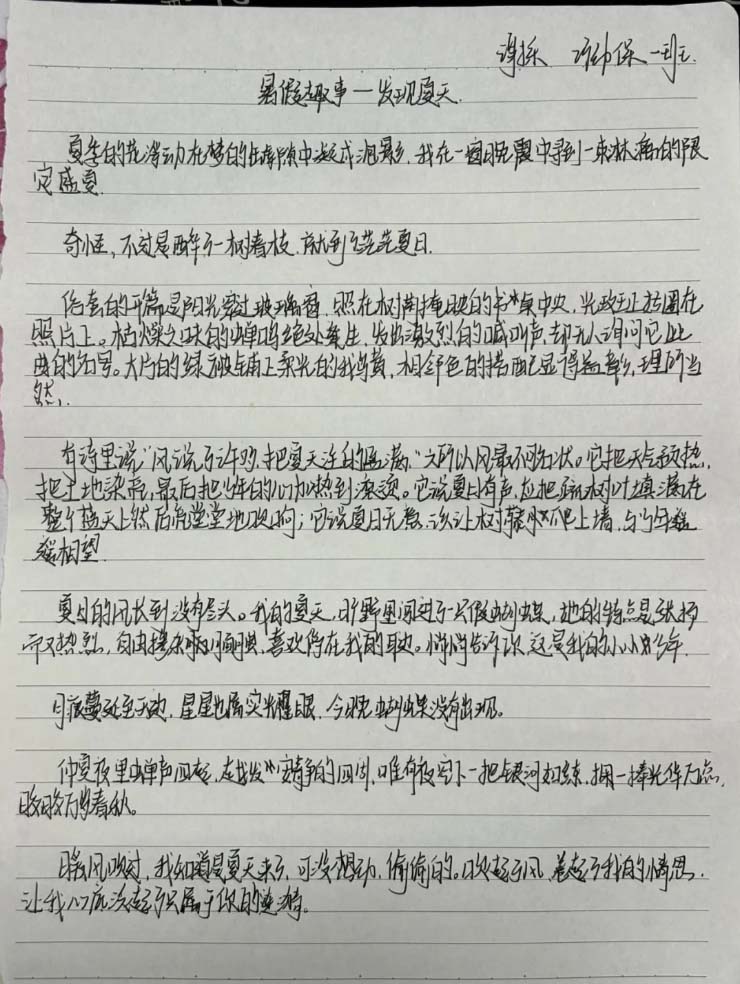 一班
暑假趣事—发现夏天
夏季的花浮动在梦的中凝成泡影,我在一窗晚霞中寻到一束淋漓的限
定盛夏
奇怪,不过是醉了一树春枝,就到了茫茫夏日.
的开篇是阳光穿过玻璃窗,照在树荫掩映的书桌中央,光斑正圈在
照片上。枯燥乏味的蝉鸣绝处逢生,发出激烈的喊叫声,却无人询问它此
曲的名号。大片的绿被铺上柔光的鹅黄,相邻色的搭配显得,理所当
然.
有诗里说"风说了许可,把夏天注的盈满."之所以风最不可名状。它把天气预热,
把土地染亮,最后把少年的心加热到滚烫。它说夏日有声,应把树叶填满在
整个蓝天上然后堂堂地吹响;它说夏日无,该让树藤爬上墙,与少年
相望.
夏日的风长到没有尽头。我的夏天,旷野里闯进了一只假蝴蝶,她的特点是张扬
而又热烈,自由,喜欢停在我的耳边。悄悄告诉你,这是我的小小少年.
月痕蔓延至天边,星星也属实光耀眼,今晚蝴蝶没有出现。
仲夏夜里蝉声四起,在找安静的回响,唯有夜空下一把银河如练,掬一捧光华万点,
岁岁春秋。
晚风吹过,我知道是夏天来了,可没想动,偷偷的。吹起了风,卷起了我的情思.
让我心底泛起了只属于你的涟漪。